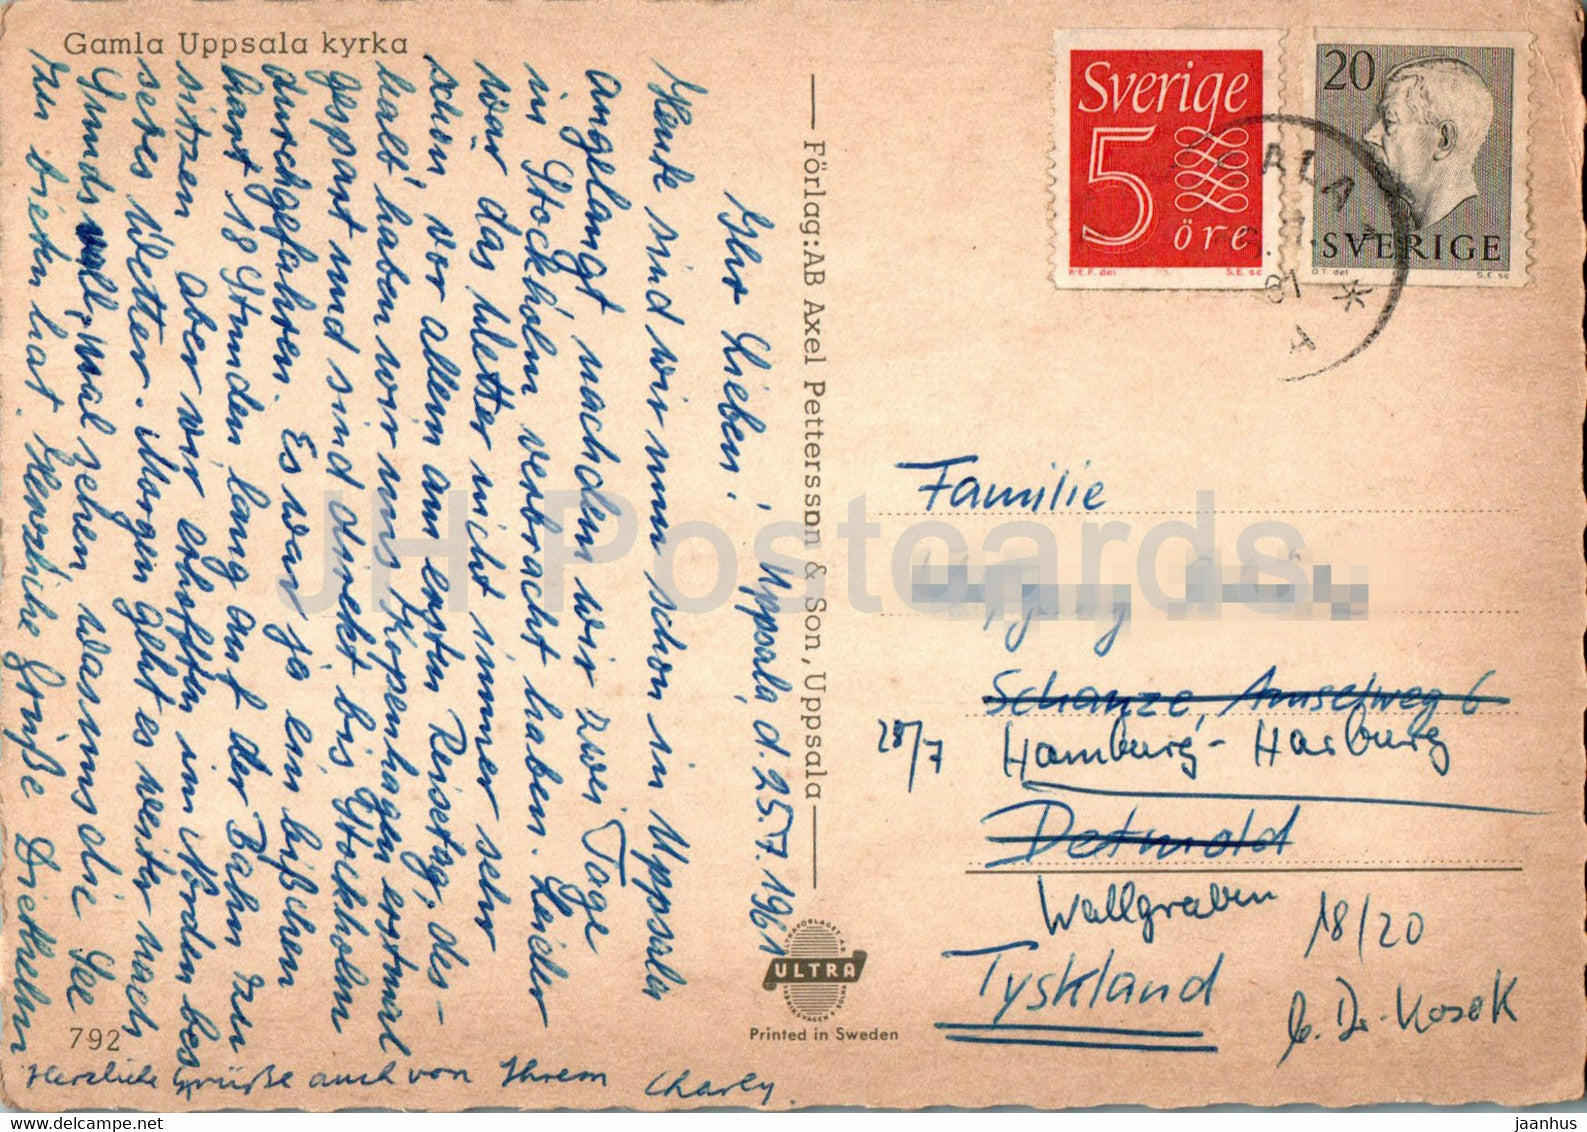 Gamla Uppsala kyrka
Uppsala, d. 25.7.1961
Ihr Lieben!
Heute sind wir nun schon in Uppsala
angelangt, nachdem wir zwei Tage
in Stockholm verbracht haben. Leider
war das Wetter nicht immer sehr
schön, vor allem am ersten Reisetag, des-
halb haben wir uns Kopenhagen erstmal
gespart und sind direkt bis Stockholm
durchgefahren. Es war ja ein bißchen
hart 18 Stunden lang auf der Bahn zu
sitzen aber wir erhofften im Norden bes-
seres Wetter. Morgen geht es weiter nach
Sundsvall, mal sehen was uns die See
zu bieten hat. Herzliche Grüße Diethelm
Herzliche Grüße auch von Ihrem Charly.
792
Förlag: AB Axel Pettersson & Son, Uppsala
ULTRA
Printed in Sweden
Sverige
5
öre
K.E.F. del
S.E. sc
20
SVERIGE
D T. del
S.E. sc
ALA
61
A
Familie
Schanze, Amselweg 6
28/7
Hamburg-Harburg
Detmold
Wallgraben
18/20
Tyskland
b. Dr. Kosok
JH Postcards
www.delcampe.net
jaanhus